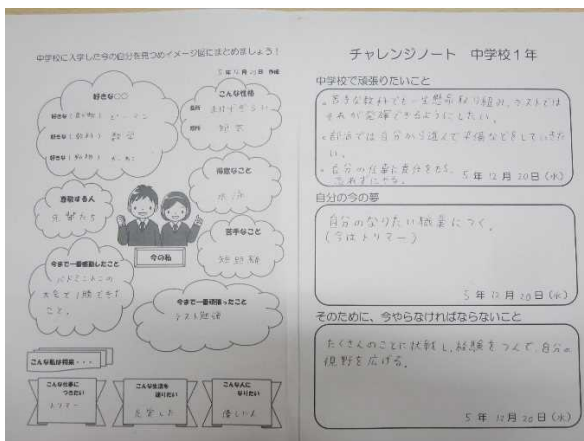 中学校に入学した今の自分を見つめイメージ図にまとめましょう!
5年12月20日 作成
好きな○○
好きな(食べ物) ピーマン
好きな(教科) 数学
好きな(動物)
こんな性格
長所 まけずぎらい
短所 短気
得意なこと
水泳
尊敬する人
先輩たち
苦手なこと
短距離
今の私
今まで一番感動したこと
バドミントンの
大会で1勝できた
こと。
今まで一番頑張ったこと
テスト勉強
こんな私は将来・・・
こんな仕事に
つきたい
トリマー
こんな生活を
送りたい
充実した
こんな人に
なりたい
優しい人
チャレンジノート 中学校1年
中学校で頑張りたいこと
・苦手な教科でも一生懸命取り組み、テストでは
それが発揮できるようにしたい。
・部活では自分から進んで準備などをしていきた
い。
・自分の仕事に責任をもち、
忘れずにやる。
5年12月20日(水)
自分の今の夢
自分のなりたい職業につく。
(今はトリマー)
5年12月20日(水)
そのために、今やらなければならないこと
たくさんのことに挑戦し、経験をつんで、自分の
視野を広げる。
5年12月20日(水)